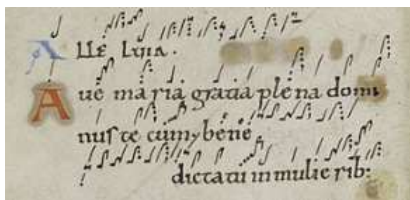 ALLE LUIA.
Aue maria gratia plena domi
nus te cum bene
dicta tu in mulierib: